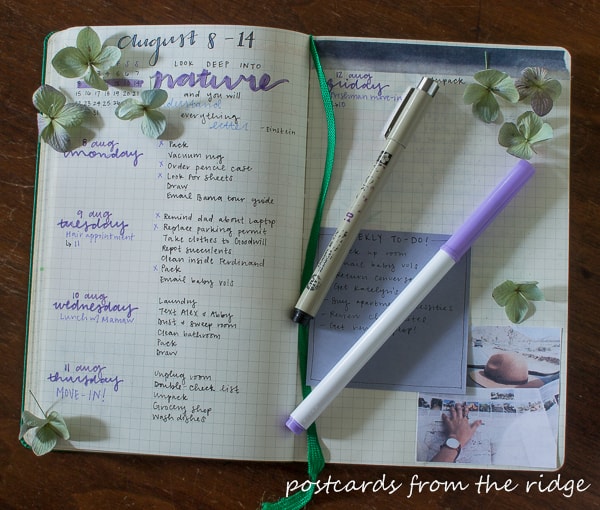 August 8-14
LOOK DEEP INTO
nature
and you will
understand
everything
better
- Einstein
8 aug
monday
x Pack
Vacuum rug
x Order pencil case
x Look for sheets
Draw
Email Bama tour guide
9 aug
tuesday
Hair appointment
↳ 11
x Remind dad about laptop
x Replace parking permit
Take clothes to Goodwill
Repot succulents
Clean inside Ferdenand
x Pack
Email baby vols
10 aug
wednesday
Lunch w/ Mamaw
Laundry
Text Alex & Abby
Dust & sweep room
Clean bathroom
Pack
Draw
11 aug
thursday
MOVE-IN!
Unplug room
Double-check list
Unpack
Grocery shop
Wash dishes
12 aug
friday
↳10
unpack
WEEKLY TO-DO!
up room
Email baby vols
Return
Get
- Buy
- Review
- Get
postcards from the ridge